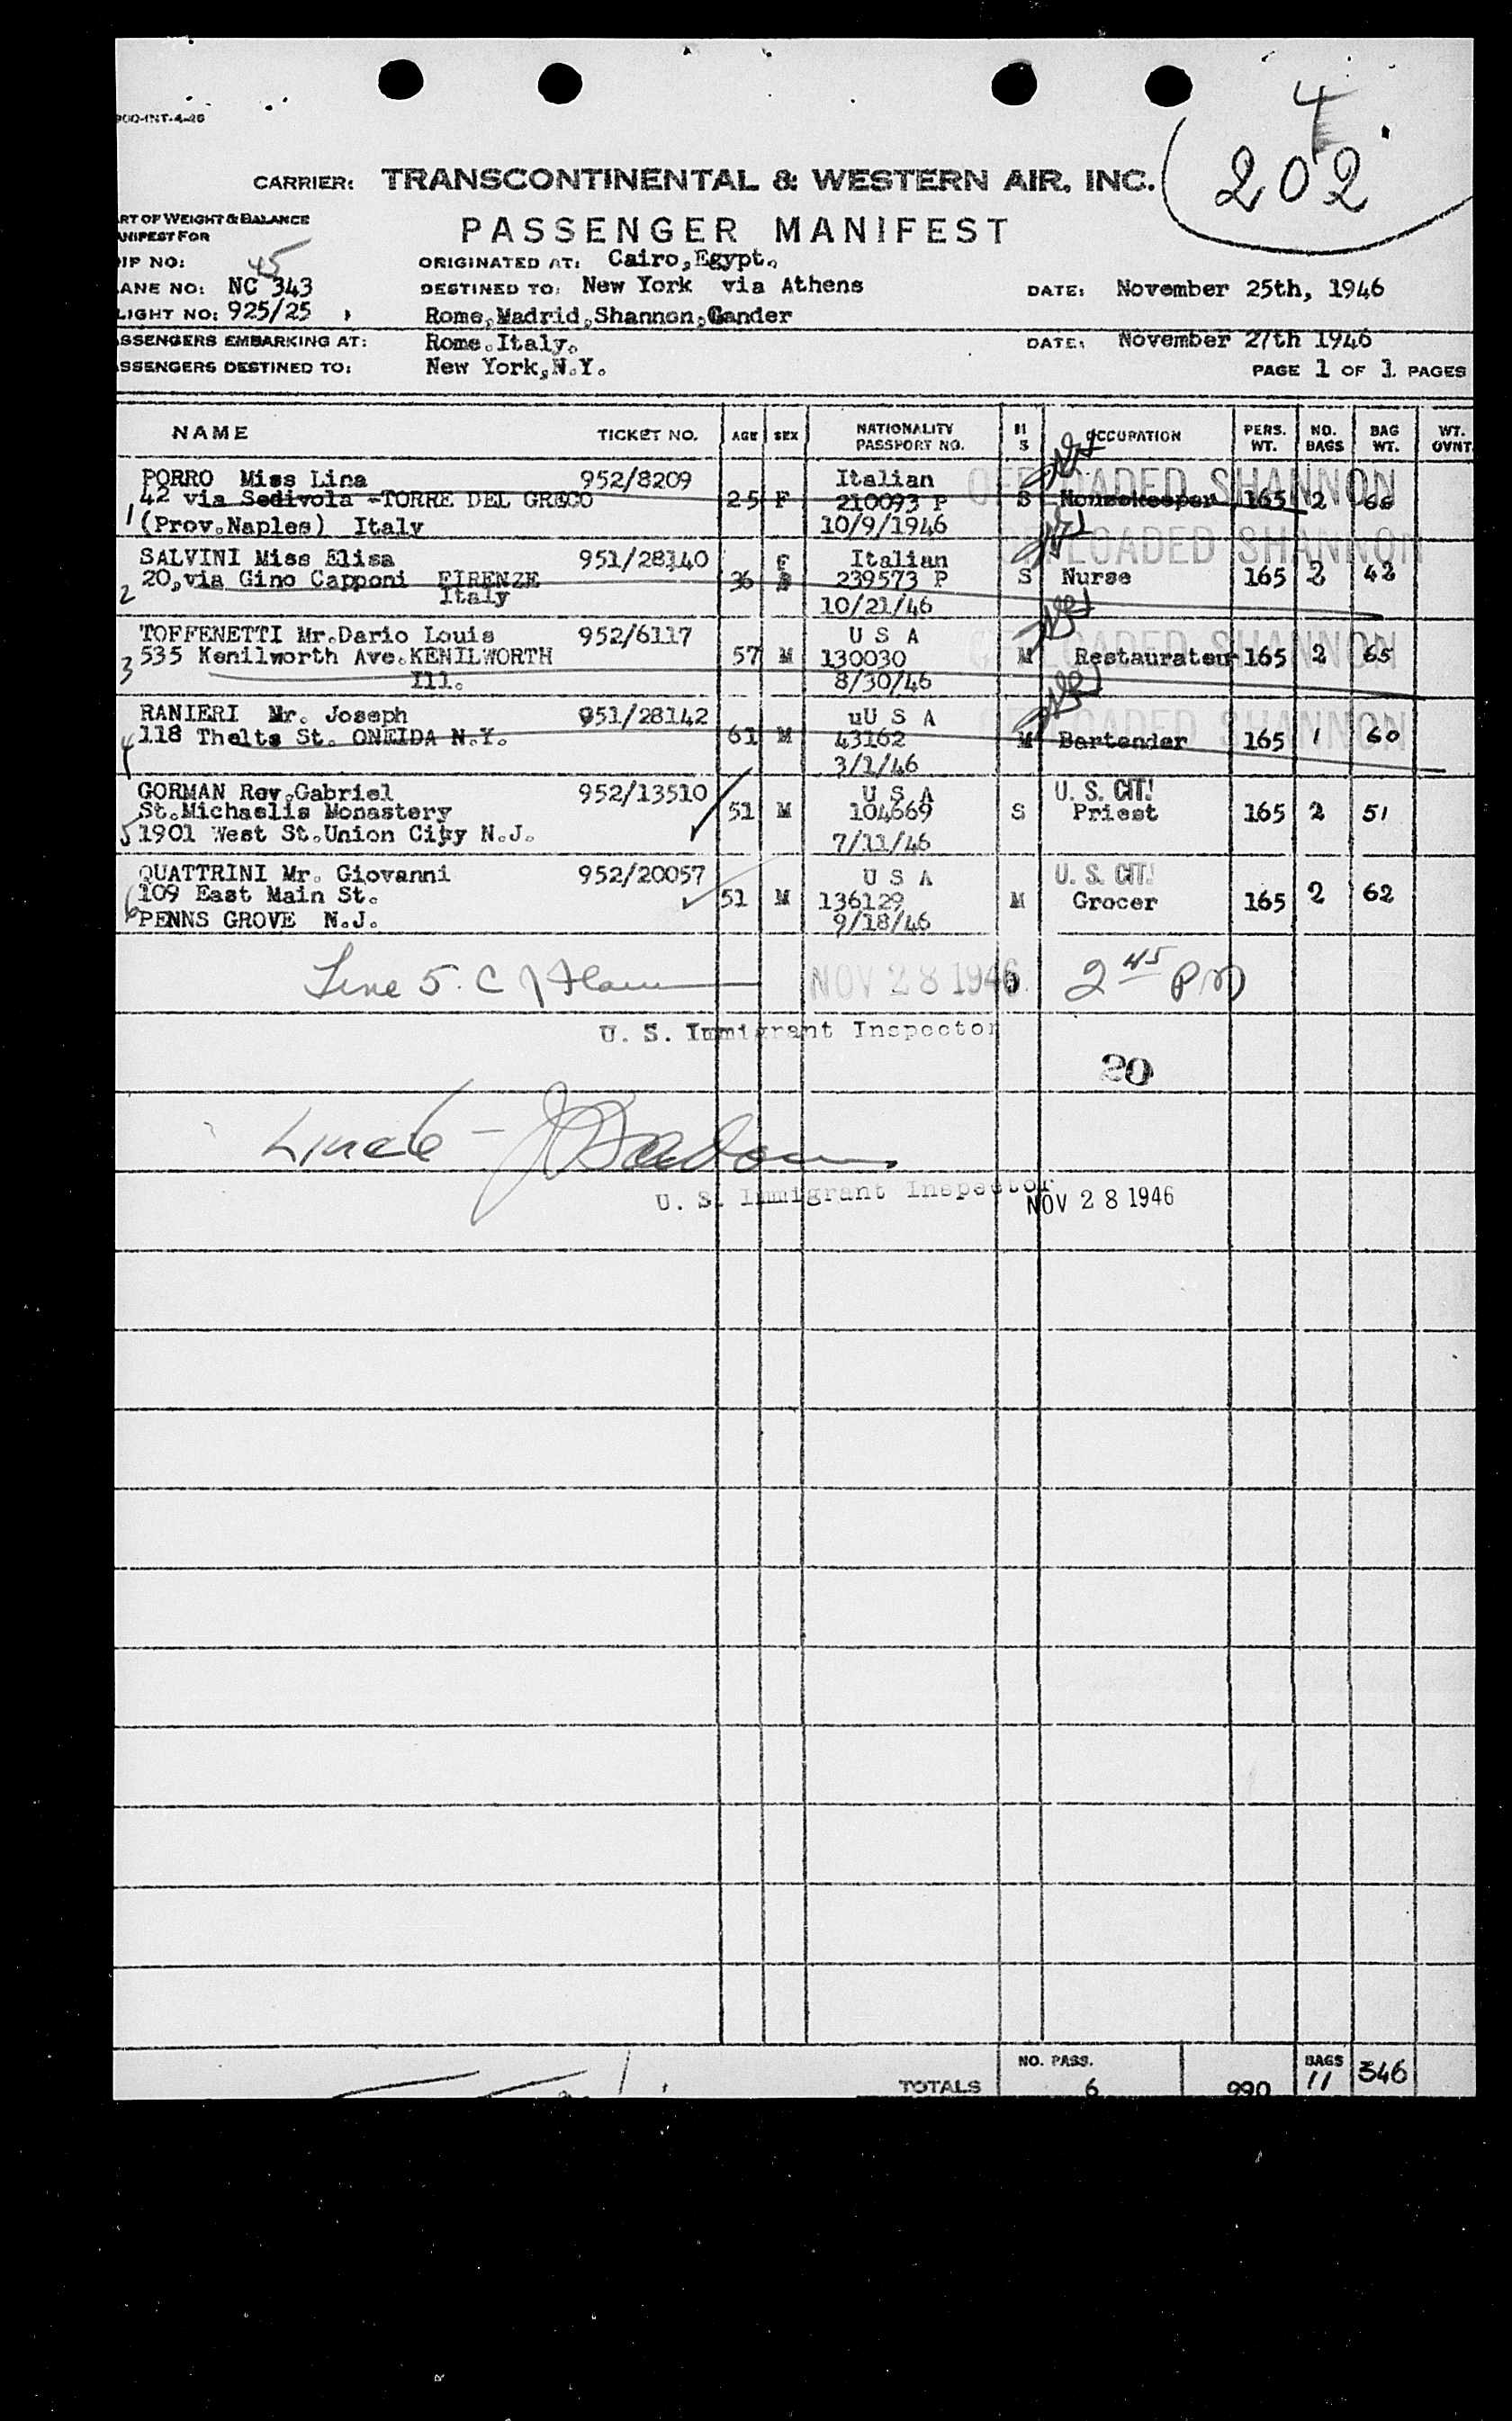 900-INT-4-46
4
202
CARRIER: TRANSCONTINENTAL & WESTERN AIR, INC.
ART OF WEIGHT & BALANCE
ANIFEST FOR
PASSENGER MANIFEST
IP NO: 45
ORIGINATED AT: Cairo,Egypt.
ANE NO: NC 343
DESTINED TO: New York via Athens
DATE: November 25th, 1946
LIGHT NO: 925/25
Rome,Madrid,Shannon,Gander
SSENGERS EMBARKING AT: Rome.Italy.
DATE: November 27th 1946
SSENGERS DESTINED TO: New York,N.Y.
PAGE 1 OF 1 PAGES
NAME TICKET NO. AGE SEX NATIONALITY PASSPORT NO. M S OCCUPATION PERS. WT. NO. BAGS BAG WT. WT. OVNT.
PORRO Miss Lina 952/8209 Italian OFFLOADED SHANNON
42 via Sedivola -TORRE DEL GRECO 25 F 210093 P S Housekeeper 165 2 66
1 (Prov.Naples) Italy 10/9/1946
SALVINI Miss Elisa 951/28140 F Italian OFFLOADED SHANNON
20,via Gino Capponi FIRENZE 36 239573 P S Nurse 165 2 42
2 Italy 10/21/46
TOFFENETTI Mr.Dario Louis 952/6117 U S A OFFLOADED SHANNON
3 535 Kenilworth Ave.KENILWORTH 57 M 130030 M Restaurateur 165 2 65
Ill. 8/30/46
RANIERI Mr. Joseph 951/28142 uU S A OFFLOADED SHANNON
4 118 Thelts St. ONEIDA N.Y. 61 M 43162 M Bartender 165 1 60
3/1/46
GORMAN Rev.Gabriel 952/13510 U S A U. S. CIT.
St.Michaelis Monastery 51 M 104669 S Priest 165 2 51
5 1901 West St.Union City N.J. 7/11/46
QUATTRINI Mr. Giovanni 952/20057 U S A U. S. CIT.
6 109 East Main St. 51 M 136129 M Grocer 165 2 62
PENNS GROVE N.J. 9/18/46
Line 5. NOV 28 1946 2 45 PM
U. S. Immigrant Inspector
20
Line 6 -
U. S. Immigrant Inspector
NOV 28 1946
TOTALS NO. PASS. 6 990 BAGS 11 346